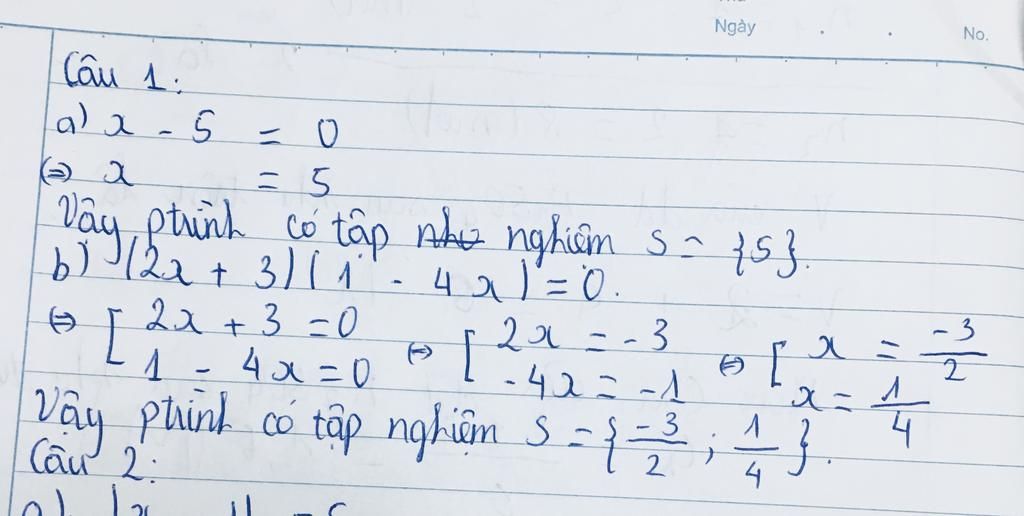 Ngày . . No.
Câu 1:
a) x - 5 = 0
⇔ x = 5
Vậy ptrình có tập nghiệm S = {5}.
b) (2x + 3)(1 - 4x) = 0.
⇔ [ 2x + 3 = 0 ⇔ [ 2x = -3 ⇔ [ x = -3/2
1 - 4x = 0 -4x = -1 x = 1/4
Vậy ptrình có tập nghiệm S = { -3/2 ; 1/4 }.
Câu 2: